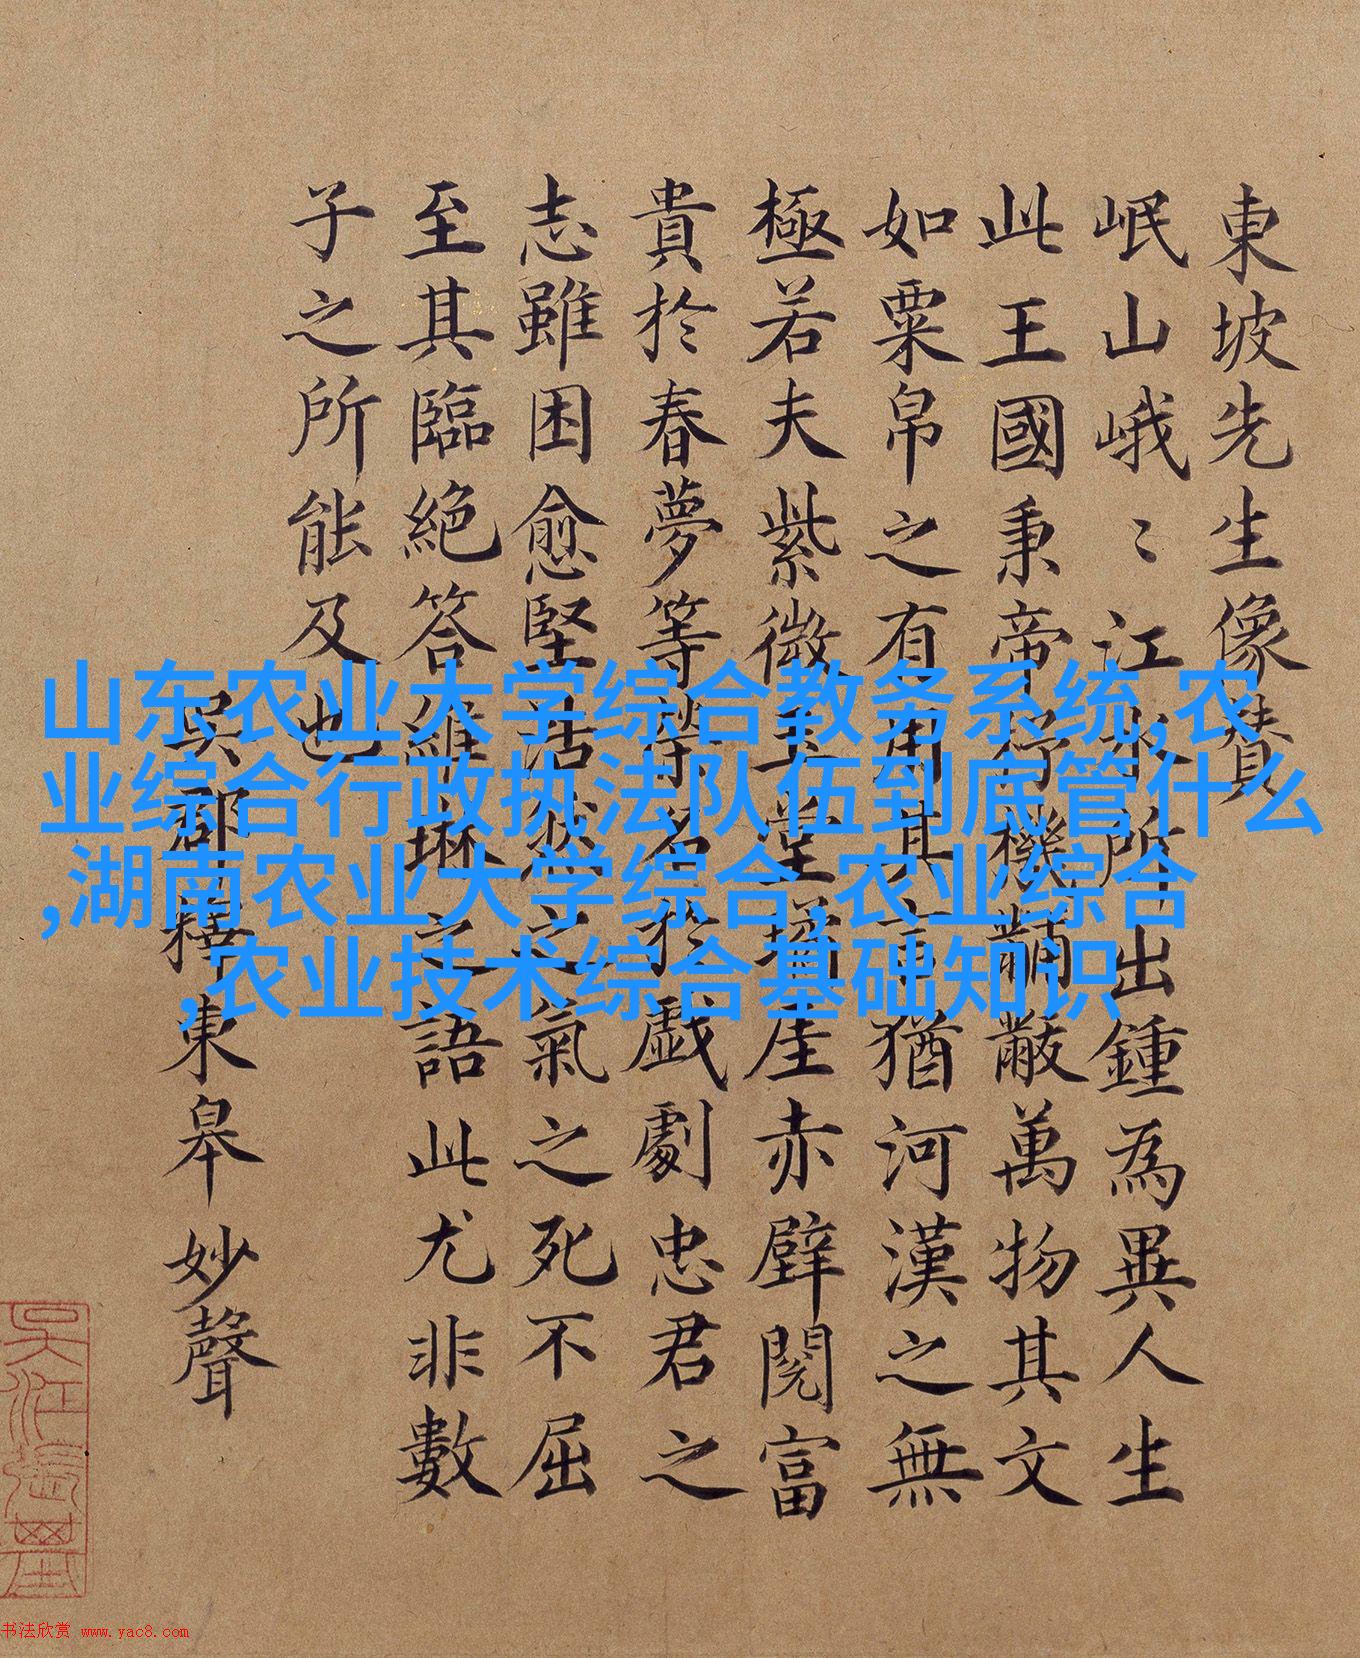 東坡先生像贊
岷山峨〻江水所出鍾為異人生
此王國秉帝杼機黼黻萬物其文
如粟帛之有用其言猶河漢之無
極若夫紫微玉堂瓊崖赤壁閱富
貴於春夢等榮名於戲劇忠君之
志雖困愈堅浩然之氣之死不屈
至其臨絕答維琳之語此尤非數
子之所能及也
吳郡釋東皋妙聲
山东农业大学综合教务系统,农
业综合行政执法队伍到底管什么
,湖南农业大学综合,农业综合
,农业技术综合基础知识
书法欣赏 www.yac8.com